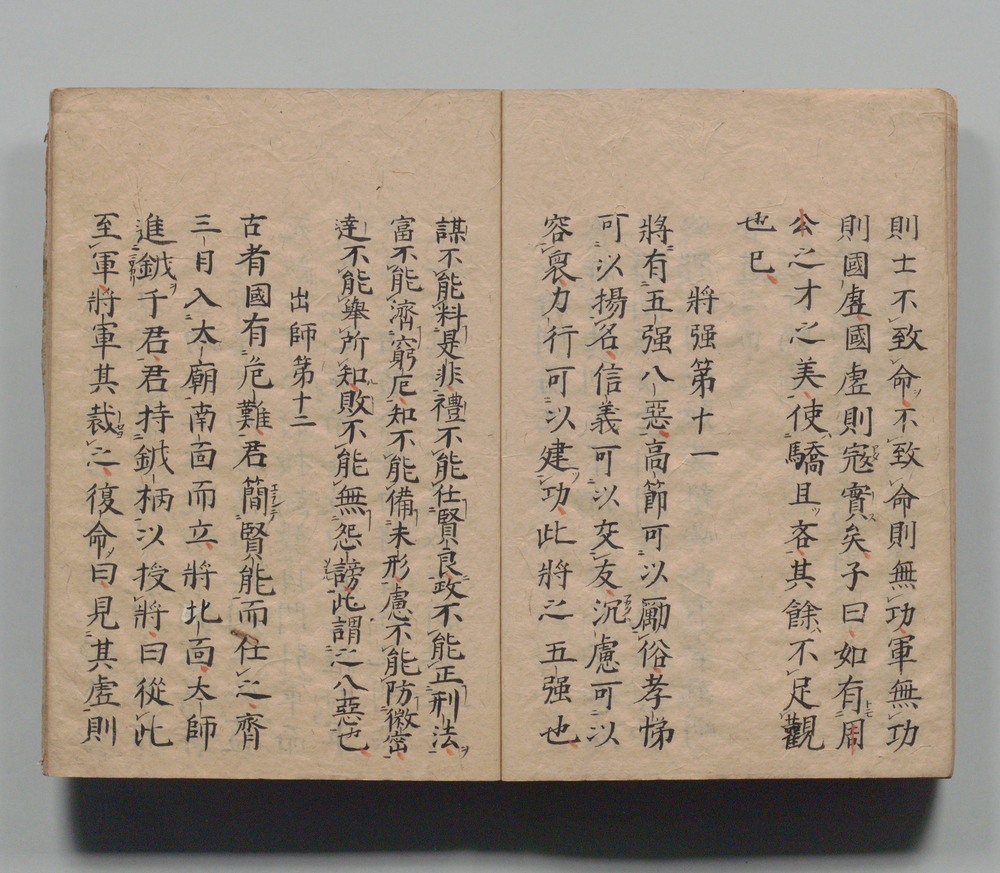 則士不致命不致命則無功軍無功
則國虛國虛則寇實矣子曰如有周
公之才之美使驕且吝其餘不足觀
也已
將强第十一
將有五强八惡高節可以勵俗孝悌
可以揚名信義可以交友沉慮可以
容衆力行可以建功此將之五强也
謀不能料是非禮不能任賢良政不能正刑法
富不能濟窮厄知不能備未形慮不能防微密
達不能舉所知敗不能無怨謗此謂之八惡也
出師第十二
古者國有危難君簡賢能而任之齊
三日入太廟南面而立將北面太師
進鉞千君君持鉞柄以授將曰從此
至軍將軍其裁之復命曰見其虛則